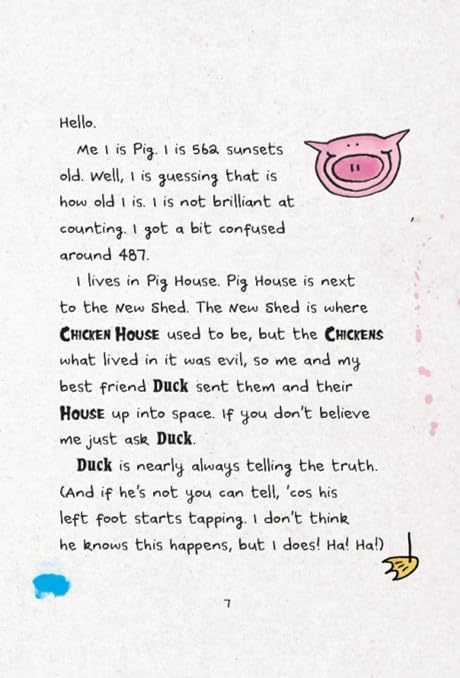 Hello.
Me I is Pig. I is 562 sunsets
old. Well, I is guessing that is
how old I is. I is not brilliant at
counting. I got a bit confused
around 487.
I lives in Pig House. Pig House is next
to the New Shed. The New Shed is where
CHICKEN HOUSE used to be, but the CHICKENS
what lived in it was evil, so me and my
best friend Duck sent them and their
HOUSE up into space. If you don't believe
me just ask Duck.
Duck is nearly always telling the truth.
(And if he's not you can tell, 'cos his
left foot starts tapping. I don't think
he knows this happens, but I does! Ha! Ha!)
7